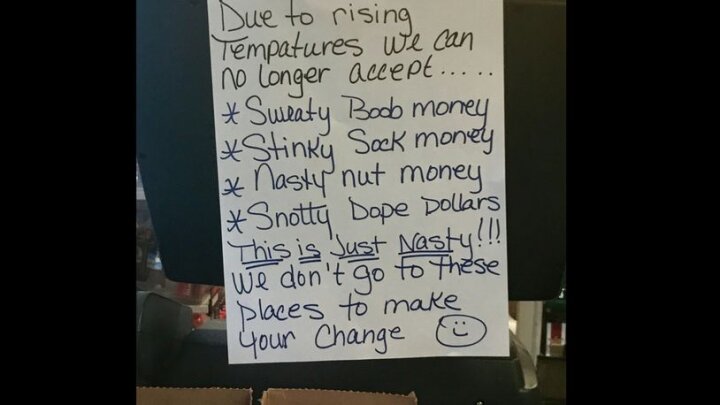 Due to rising
Tempatures we can
no longer accept.....
* Sweaty Boob money
* Stinky Sock money
* Nasty nut money
* Snotty Dope Dollars
This is Just Nasty!!!
We don't go to these
places to make
your Change